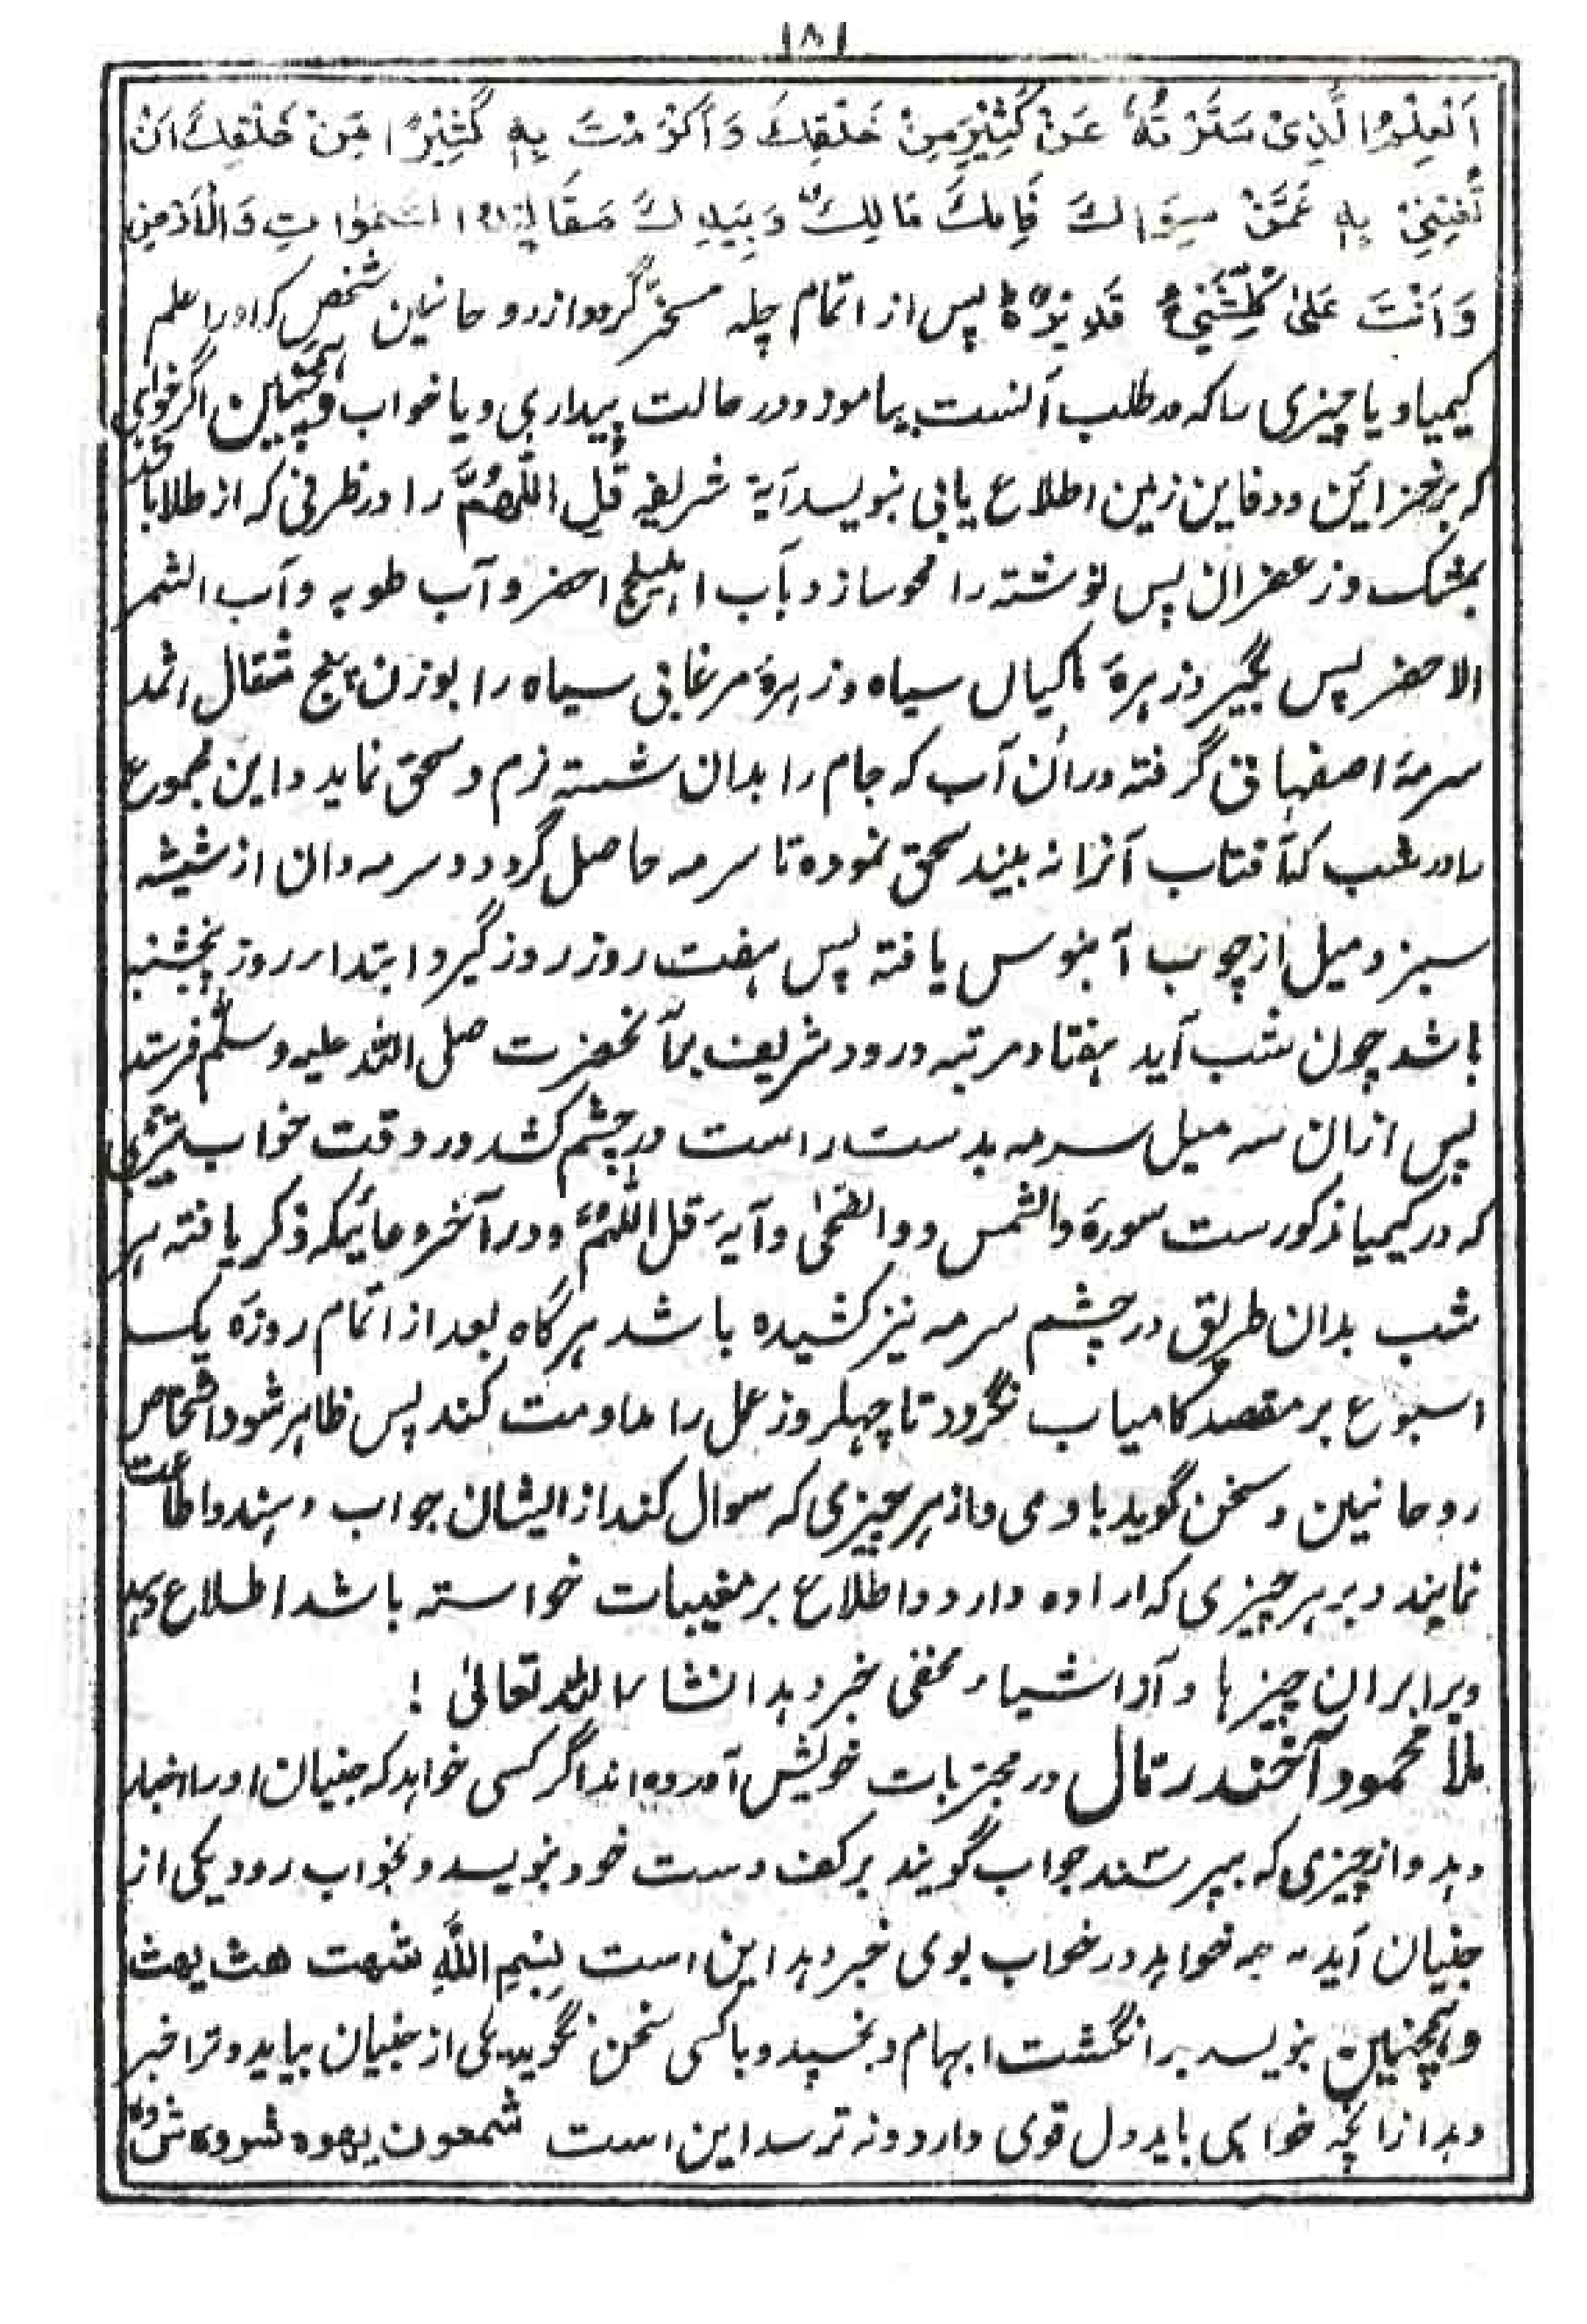 ۱۸۱
اَلْعِلْمَ الَّذِیْ سَتَرْتَهٗ عَنْ کَثِیْرٍ مِنْ خَلْقِكَ وَاَکْرَمْتَ بِهٖ کَثِیْرًا مِّنْ خَلْقِكَ اَنْ
تُغْنِیَنِیْ بِهٖ عَمَّنْ سِوَاكَ فَاِنَّكَ مَالِكٌ وَبِیَدِكَ مَقَالِیْدُ السَّمٰوٰاتِ وَالْاَرْضِ
وَاَنْتَ عَلیٰ کُلِّ شَیْءٍ قَدِیْرٌ پس از اتمام چله مسخر گردد از روحانیین شخص که او را علم
کیمیا و یا چیزی را که در طلب آنست بیاموزد در حالت بیداری و یا خواب وهمچنین اگر خواهی
که بر خزائن و دفاین زمین اطلاع یابی بنویسد آیة شریفه قُلِ اللّٰهُمَّ را در ظرفی که از طلا باشد
بمشک و زعفران پس نوشته را محو سازد بآب اهلیلج اخضر و آب طوبه وآب الثمر
الاخضر پس بگیرد زهرۀ ماکیان سیاه و زهرۀ مرغابی سیاه را بوزن پنج مثقال اثمد
سرمۀ اصفهانی گرفته در آن آب که جام را بدان شسته نرم و سحق نماید و این مجموع
را در شب که آفتاب آنرا نه بیند سحق نموده تا سرمه حاصل گردد و سرمه دان از شیشه
سبز و میل از چوب آبنوس یافته پس هفت روز روزه گیرد ابتدا از روز پنجشنبه
باشد چون شب آید هفتاد مرتبه درود شریف بر آنحضرت صلی الله علیه وسلم فرستد
پس ازان سه میل سرمه بدست راست در چشم کشد در وقت خواب
که در کیمیا مذکورست سورۀ والشمس و والضحیٰ وآیه قل اللّٰهم و در آخر دعائیکه ذکر یافته هر
شب بدان طریق در چشم سرمه نیز کشیده باشد هرگاه بعد از اتمام روزۀ یک
اسبوع بر مقصد کامیاب نگردد تا چهلروز عمل را مداومت کند پس ظاهر شود اشخاص
روحانیین و سخن گوید با وی و از هر چیزی که سوال کند از ایشان جواب دهند و اطاعت
نمایند و بر هر چیزی که اراده دارد و اطلاع بر مغیبات خواسته باشد اطلاع دهد
وبرابر ان چیزها و آن اشیاء مخفی خبر دهد انشاء الله تعالیٰ !
ملا محمود آخند رمال در مجربات خویش آورده اند اگر کسی خواهد که جنیان او را اخبار
دهد و از چیزی که بپرسند جواب گویند بر کف دست خود بنویسد و بخواب رود یکی از
جنیان آید هر چه خواهد در خواب بوی خبر دهد این است بِسْمِ اللّٰهِ شهت هث یهث
وهمچنین بنویسد بر انگشت ابهام و بخسپد و با کسی سخن نگوید یکی از جنیان بیاید و ترا خبر
دهد از انچه خواهی باید دل قوی دارد و نه ترسد این است شمعون یهوه